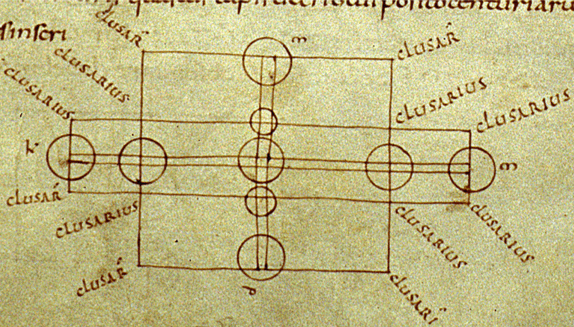 posito centuriaru
sinscri
clusar̄
m
clusar̄
clusarius
clusarius
clusarius
clusarius
k
m
clusar̄
clusarius
clusarius
clusarius
clusar̄
p
clusari